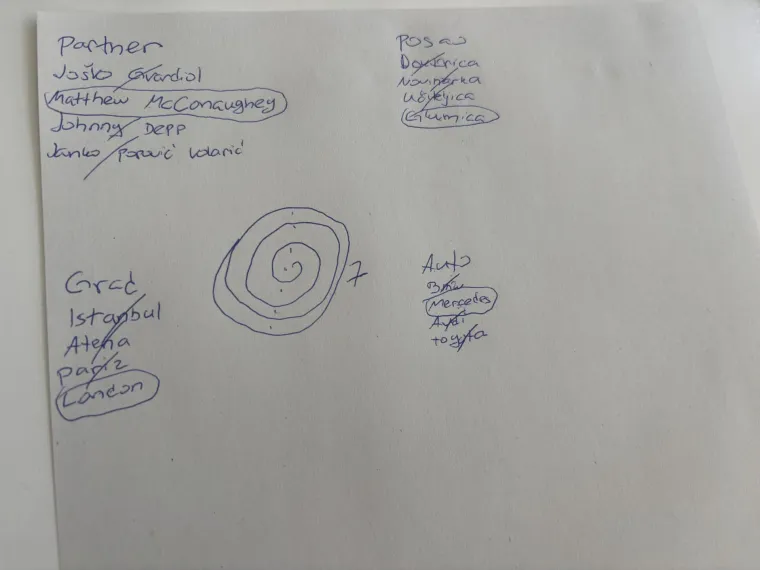 Partner
Joško Gvardiol
Matthew McConaughey
Johnny Depp
Janko Popović Volarić
Posao
Doktorica
Novinarka
Učiteljica
Glumica
Grad
Istanbul
Atena
Pariz
London
7
Auto
BMW
Mercedes
Audi
toyota